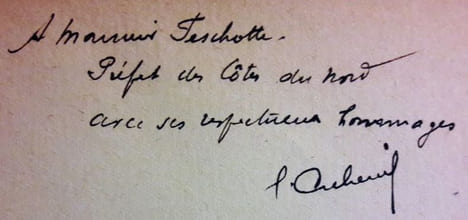 A Monsieur Feschotte.
Préfet des Côtes du Nord
avec ses respectueux hommages